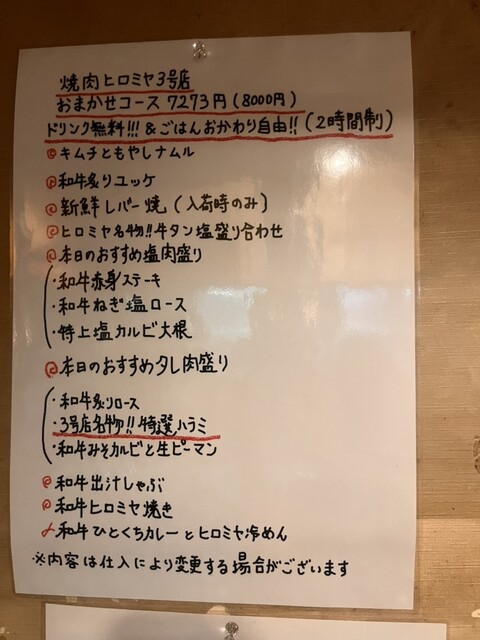 焼肉ヒロミヤ3号店
おまかせコース 7273円(8000円)
ドリンク無料!!! & ごはんおかわり自由!!(2時間制)
◎キムチともやしナムル
◎和牛炙りユッケ
◎新鮮レバー焼(入荷時のみ)
◎ヒロミヤ名物!!牛タン塩盛り合わせ
◎本日のおすすめ塩肉盛り
・和牛赤身ステーキ
・和牛ねぎ塩ロース
・特上塩カルビ大根
◎本日のおすすめタレ肉盛り
・和牛炙りロース
・3号店名物!!特選ハラミ
・和牛みそカルビと生ピーマン
◎和牛出汁しゃぶ
◎和牛ヒロミヤ焼き
〆和牛ひとくちカレーとヒロミヤ冷めん
※内容は仕入により変更する場合がございます